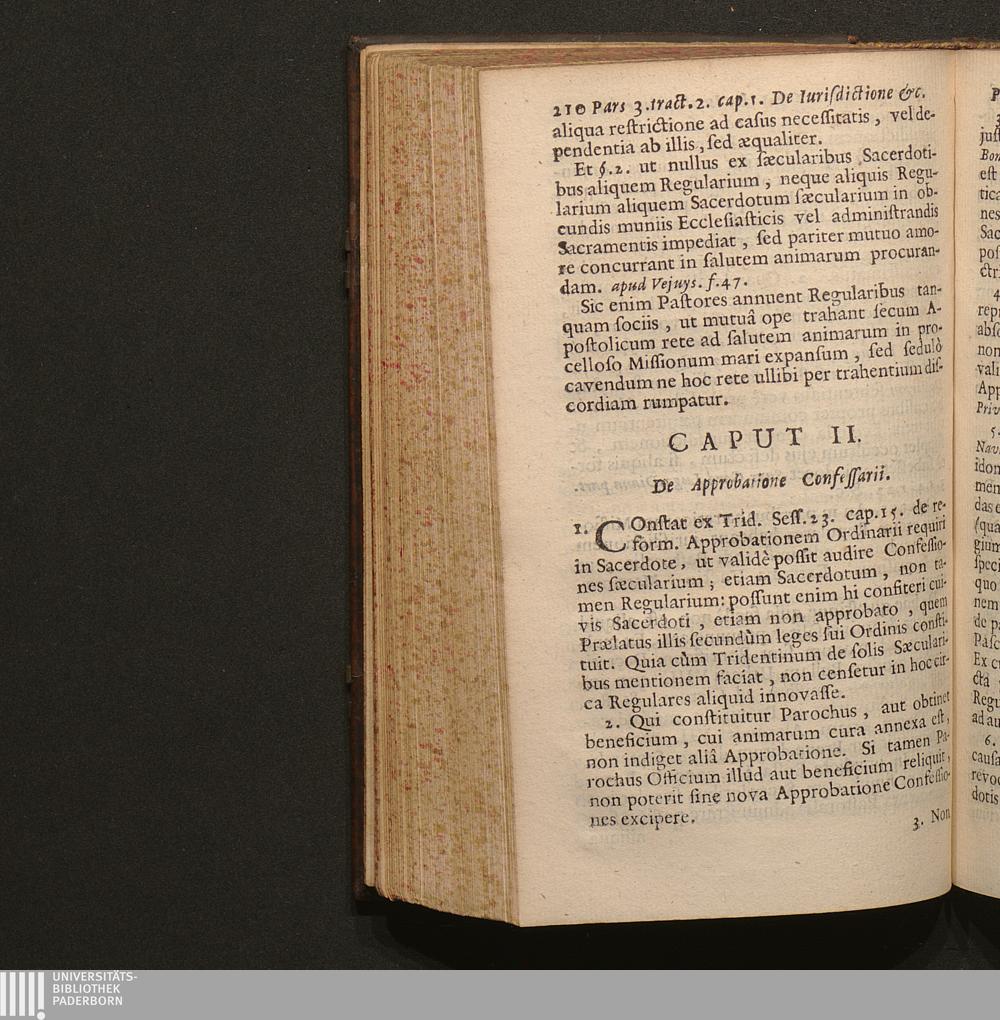 210 Pars 3. tract. 2. cap. 1. De Iurisdictione &c.
aliqua restrictione ad casus necessitatis, vel de-
pendentia ab illis, sed æqualiter.
Et §. 2. ut nullus ex sæcularibus Sacerdoti-
bus aliquem Regularium, neque aliquis Regu-
larium aliquem Sacerdotum sæcularium in ob-
eundis muniis Ecclesiasticis vel administrandis
Sacramentis impediat, sed pariter mutuo amo-
re concurrant in salutem animarum procuran-
dam. apud Vejuys. f. 47.
Sic enim Pastores annuent Regularibus tan-
quam sociis, ut mutuâ ope trahant secum A-
postolicum rete ad salutem animarum in pro-
celloso Missionum mari expansum, sed sedulò
cavendum ne hoc rete ullibi per trahentium dis-
cordiam rumpatur.
CAPUT II.
De Approbatione Confessarii.
1. COnstat ex Trid. Sess. 23. cap. 15. de re-
form. Approbationem Ordinarii requiri
in Sacerdote, ut validè possit audire Confessio-
nes sæcularium; etiam Sacerdotum, non ta-
men Regularium: possunt enim hi confiteri cui-
vis Sacerdoti, etiam non approbato, quem
Prælatus illis secundùm leges sui Ordinis consti-
tuit. Quia cùm Tridentinum de solis Sæculari-
bus mentionem faciat, non censetur in hoc cir-
ca Regulares aliquid innovasse.
2. Qui constituitur Parochus, aut obtinet
beneficium, cui animarum cura annexa est,
non indiget aliâ Approbatione. Si tamen Pa-
rochus Officium illud aut beneficium reliquit,
non poterit sine nova Approbatione Confessio-
nes excipere.
3. Non
UNIVERSITÄTS-
BIBLIOTHEK
PADERBORN